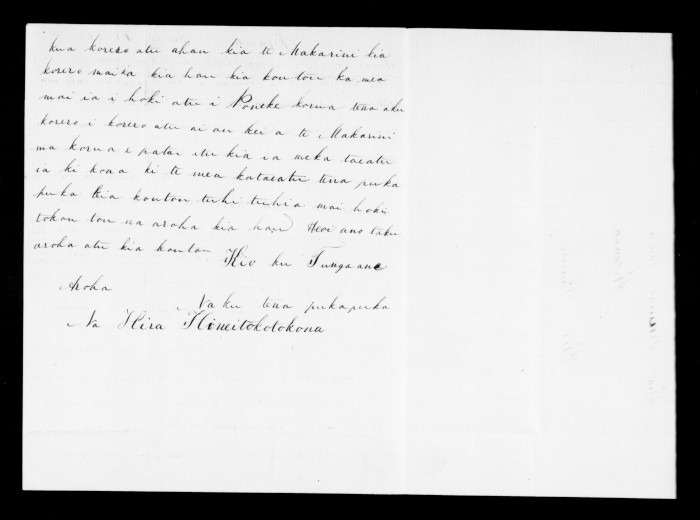 kua korero atu ahau kia te Makarini kia
korero maika kia hau kia koutou ka mea
mai ia i hoki atu i Poneke korua tena aku
korero i korero atu ai au kei a te Makarini
ma korua e patai atu kia ia meka taeatu
ia ki kona ki te mea kataeatu tena puka
puka kia koutou tuhi tuhia mai hoki
tokou tou na aroha kia hau) Heoi ano taku
aroha atu kia koutou
Kio ku Tungaane
Aroha
Na ku tena pukapuka
Na Hira Hineitokotokona